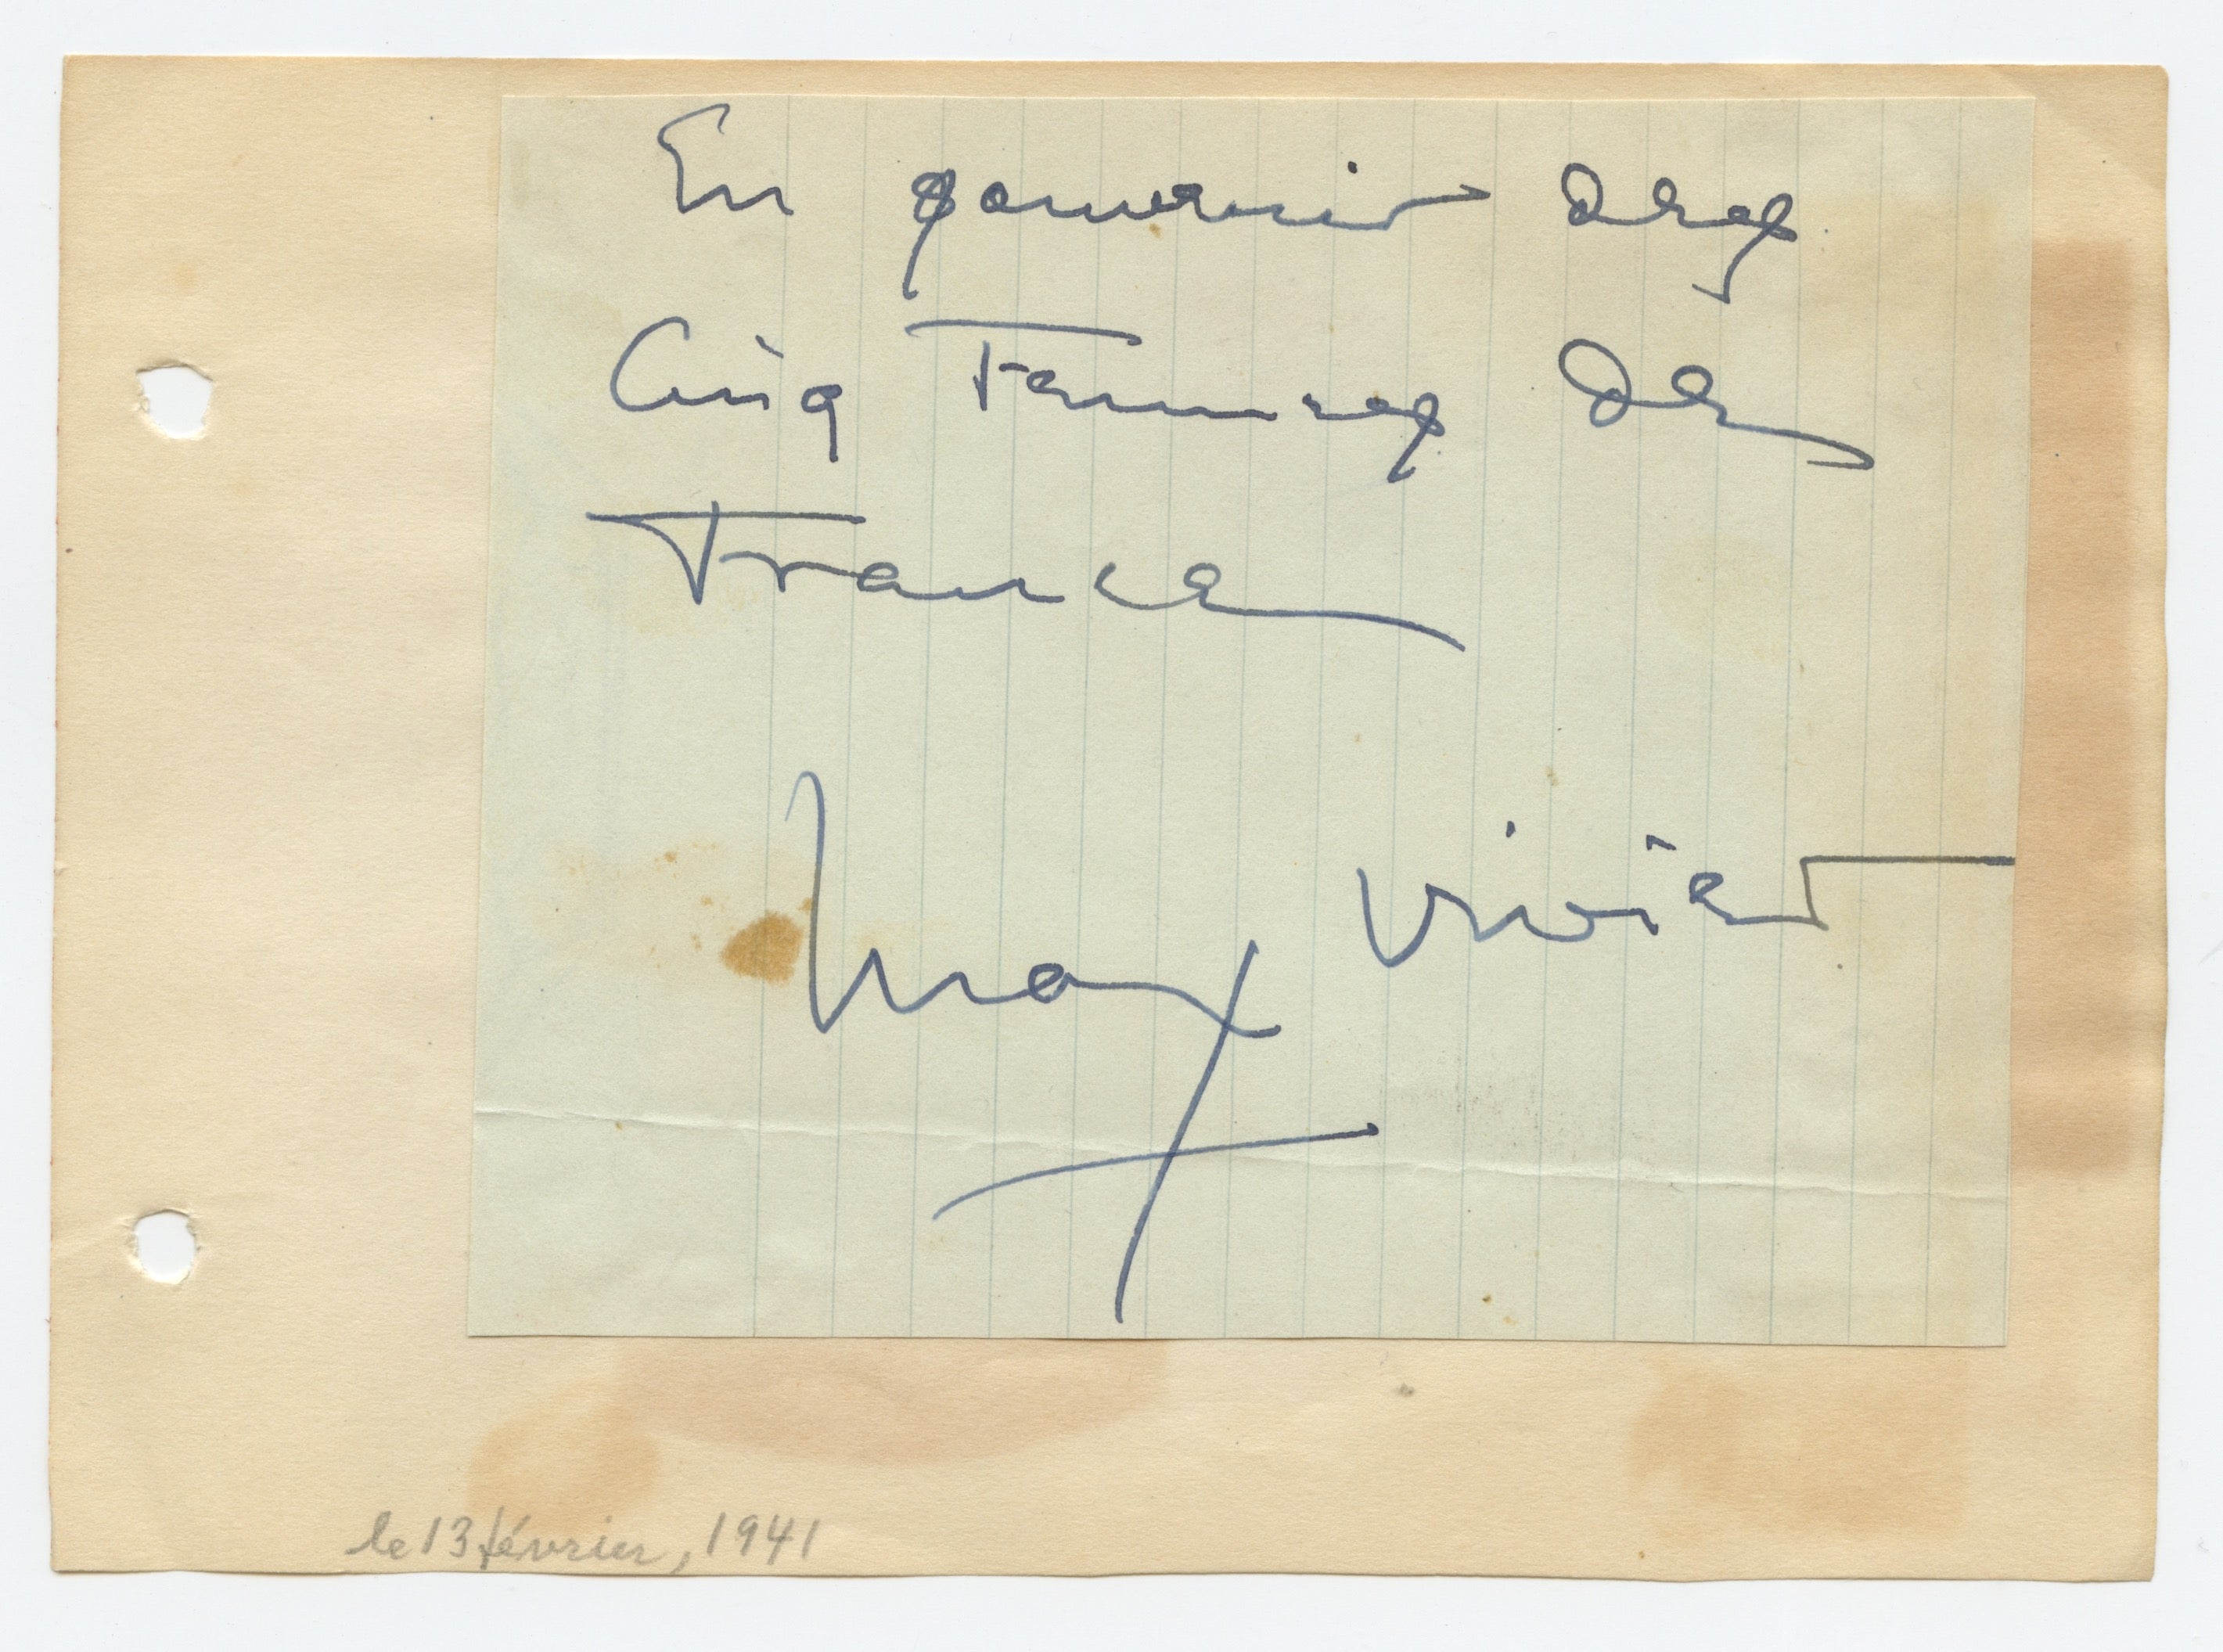 En souvenir des
Cinq Femmes de
France
Max Vivier
le 13 février, 1941